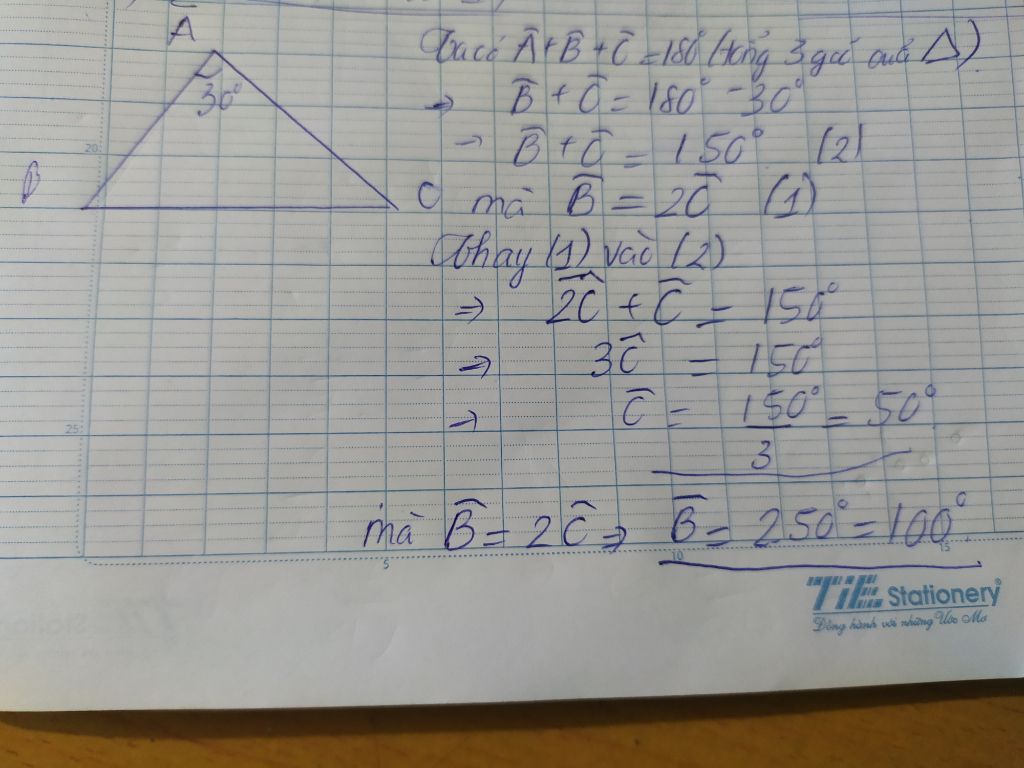 A
30°
B
C
Ta có Â + B̂ + Ĉ = 180° (tổng 3 góc của Δ)
→ B̂ + Ĉ = 180° - 30°
→ B̂ + Ĉ = 150° (2)
mà B̂ = 2Ĉ (1)
Thay (1) vào (2)
⇒ 2Ĉ + Ĉ = 150°
⇒ 3Ĉ = 150°
→ Ĉ = 150°/3 = 50°
mà B̂ = 2Ĉ ⇒ B̂ = 250° = 100°
20
25
5
10
15
TiE Stationery®
Đồng hành với những Ước Mơ